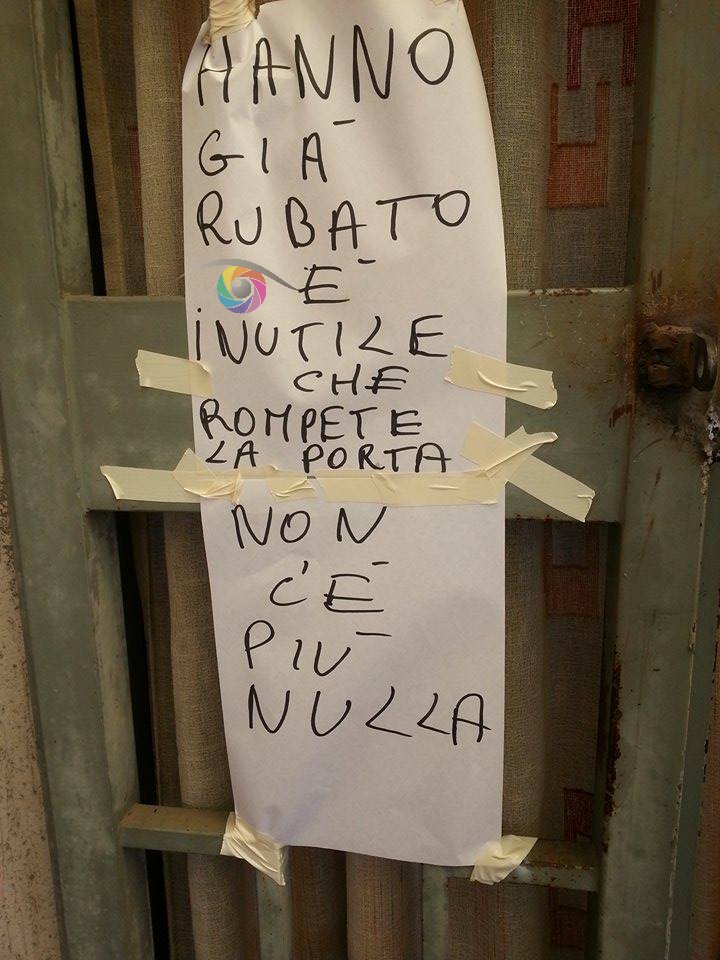 HANNO
GIÀ
RUBATO
È
INUTILE
CHE
ROMPETE
LA PORTA
NON
C'È
PIÙ
NULLA